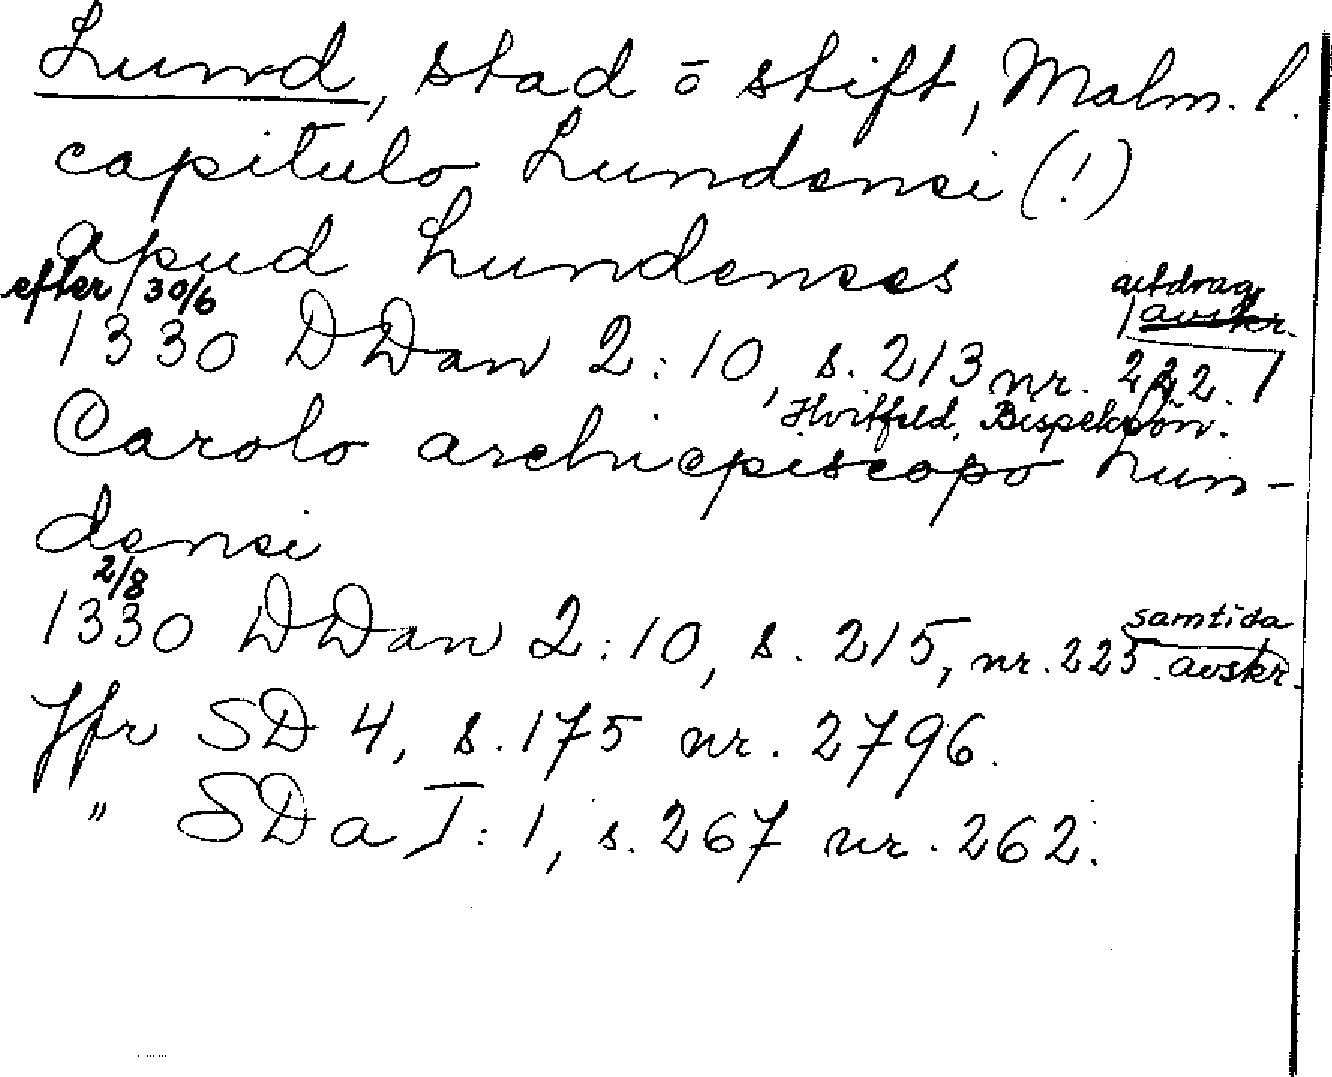 Lund, stad o stift, Malm. l.
capitulo Lundensi (!)
apud Lundenses
efter 30/6 utdrag
1330 DDan 2:10, s. 213 nr. 222.
Hvitfeld, Bispekrön.
Carolo archiepiscopo Lun-
densi
2/8
1330 DDan 2:10, s. 215, nr. 225. samtida avskr.
Jfr SD 4, s. 175 nr. 2796.
" SDa I:1, s. 267 nr. 262.